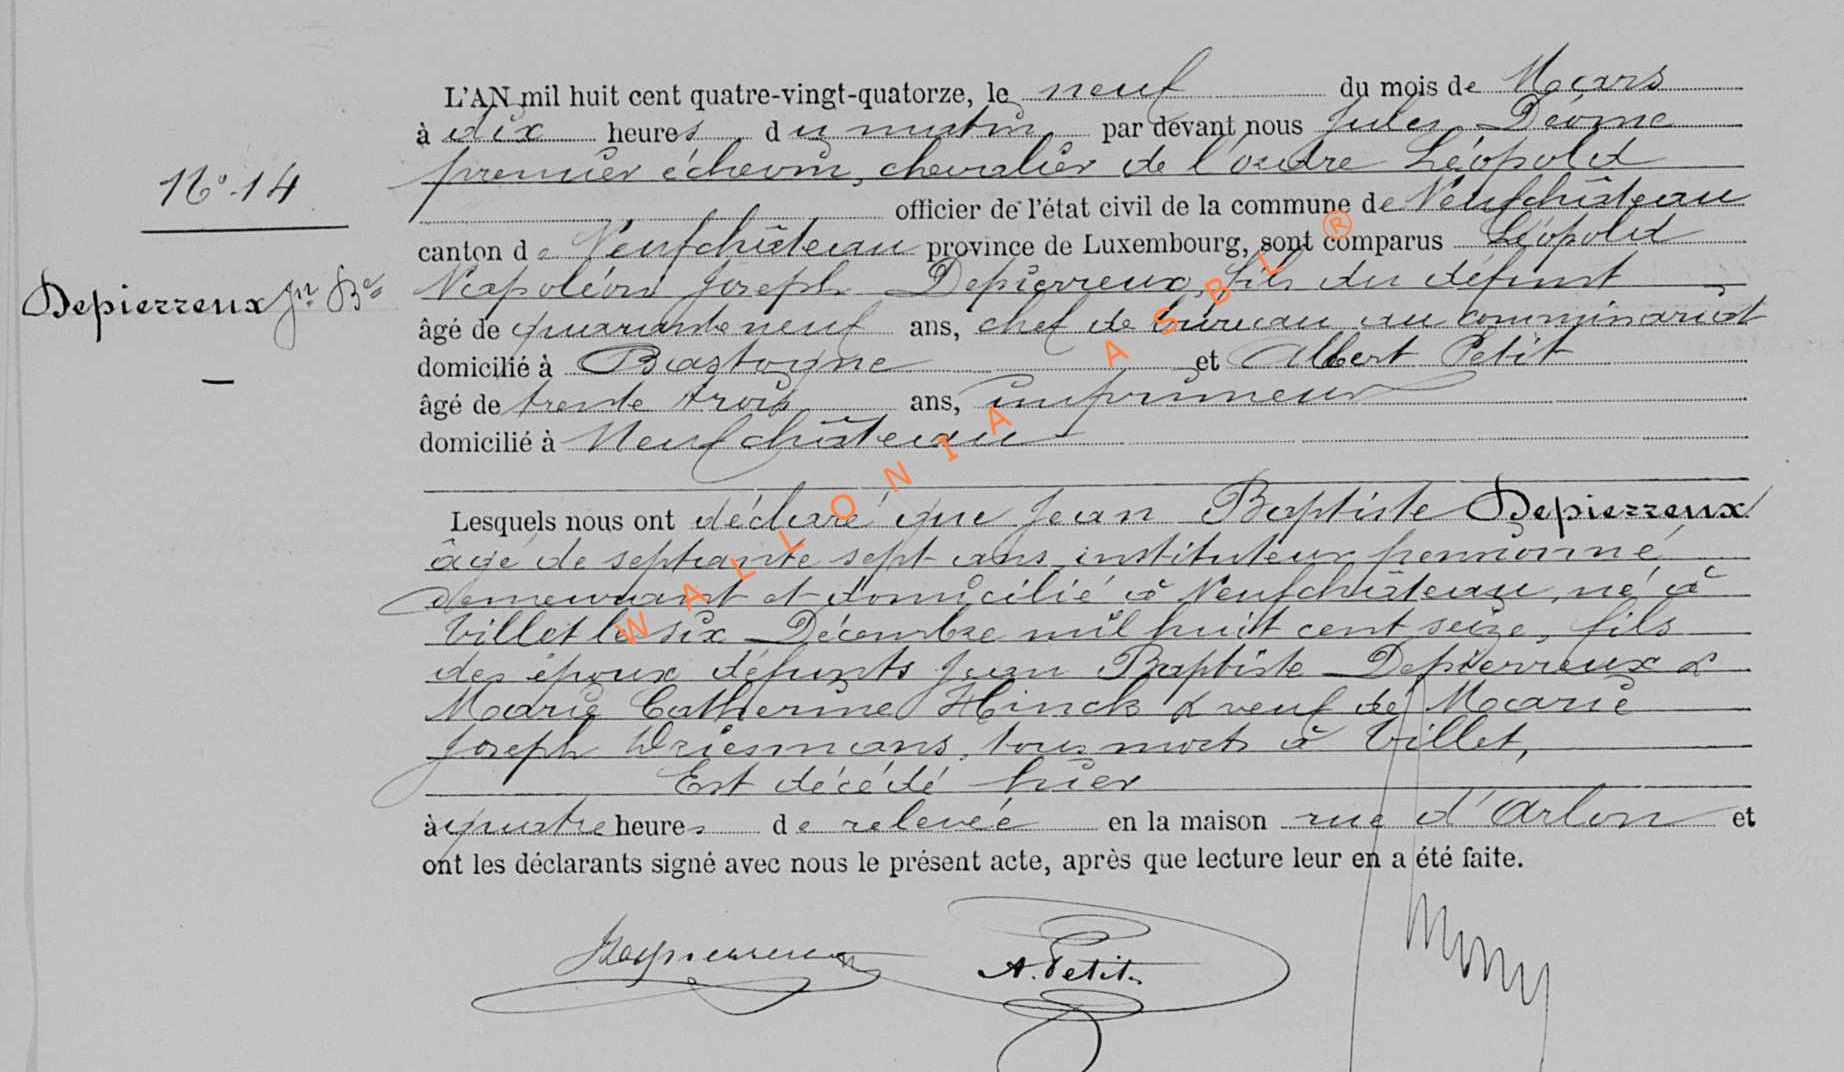 L'AN mil huit cent quatre-vingt-quatorze, le neuf du mois de Mars
à dix heures du matin par devant nous Jules Déome
premier échevin, chevalier de l'ordre Léopold
N° 14
officier de l'état civil de la commune de Neufchâteau
canton de Neufchâteau province de Luxembourg, sont comparus Léopold
Depierreux Jn Bte Napoléon Joseph Depierreux, fils du défunt
âgé de quarante neuf ans, chef de bureau au commissariat
domicilié à Bastogne et Albert Petit
âgé de trente trois ans, imprimeur
domicilié à Neufchâteau
Lesquels nous ont déclaré que Jean Baptiste Depierreux
âgé de septante sept ans, instituteur pensionné,
demeurant et domicilié à Neufchâteau, né à
Tillet le six Décembre mil huit cent seize, fils
des époux défunts Jean Baptiste Depierreux &
Marie Catherine Hinck & veuf de Marie
Joseph Driesmans, tous morts à Tillet,
Est décédé hier
à quatre heures de relevée en la maison rue d'Arlon et
ont les déclarants signé avec nous le présent acte, après que lecture leur en a été faite.
Depierreux A. Petit
WALLONIA ASBL ®